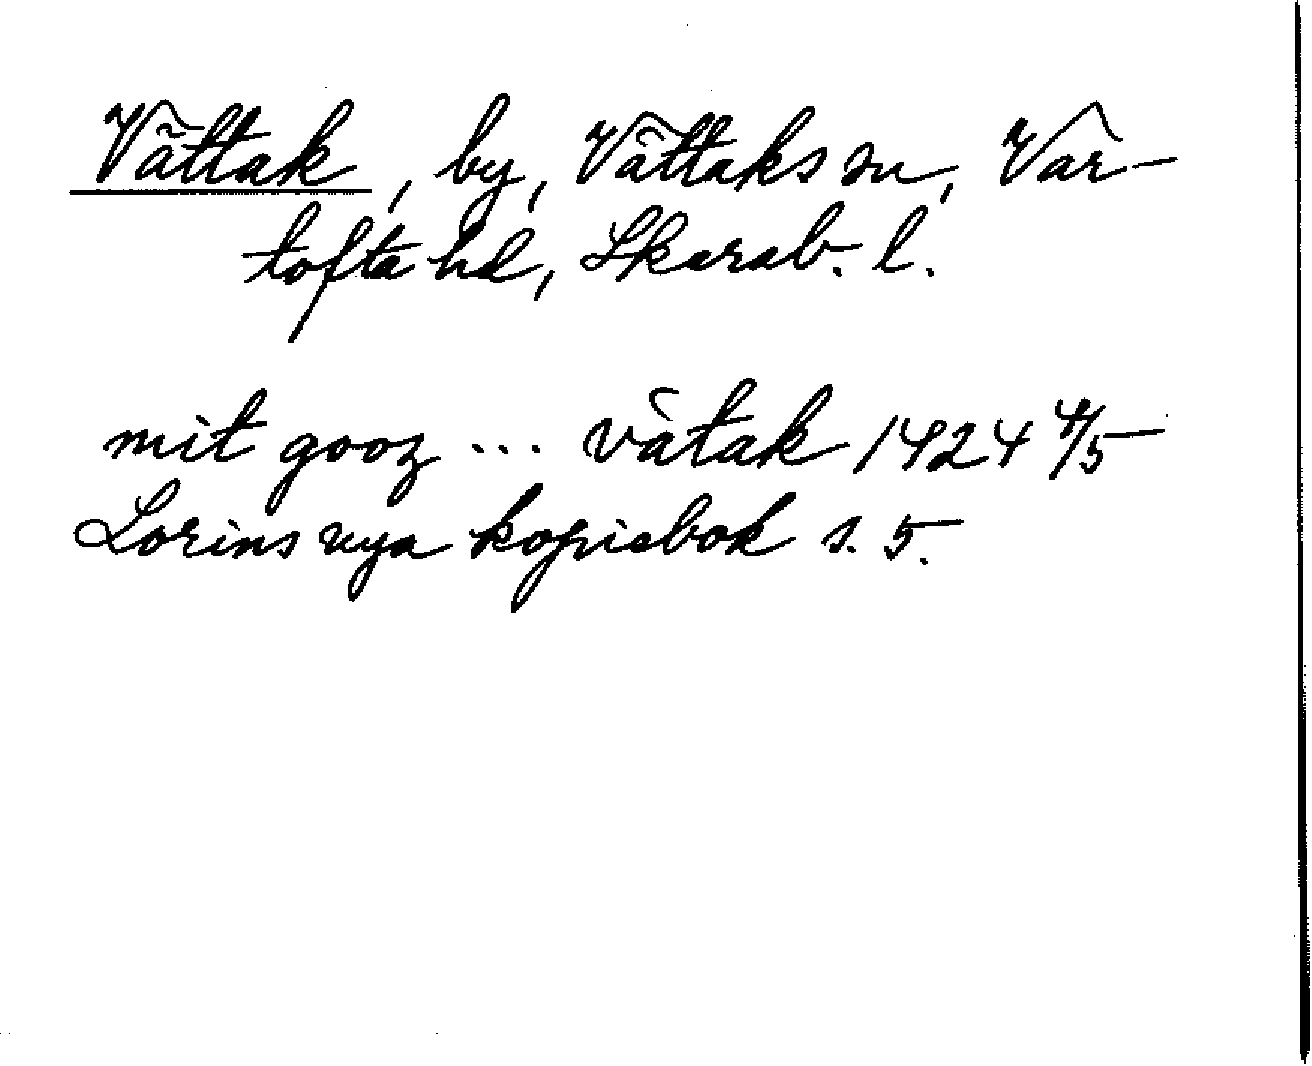 Vättak, by, Vättaks sn, Var-
tofta hd, Skarab. l.
mit gooz ... vätak 1424 4/5
Lorins nya kopiebok s. 5.